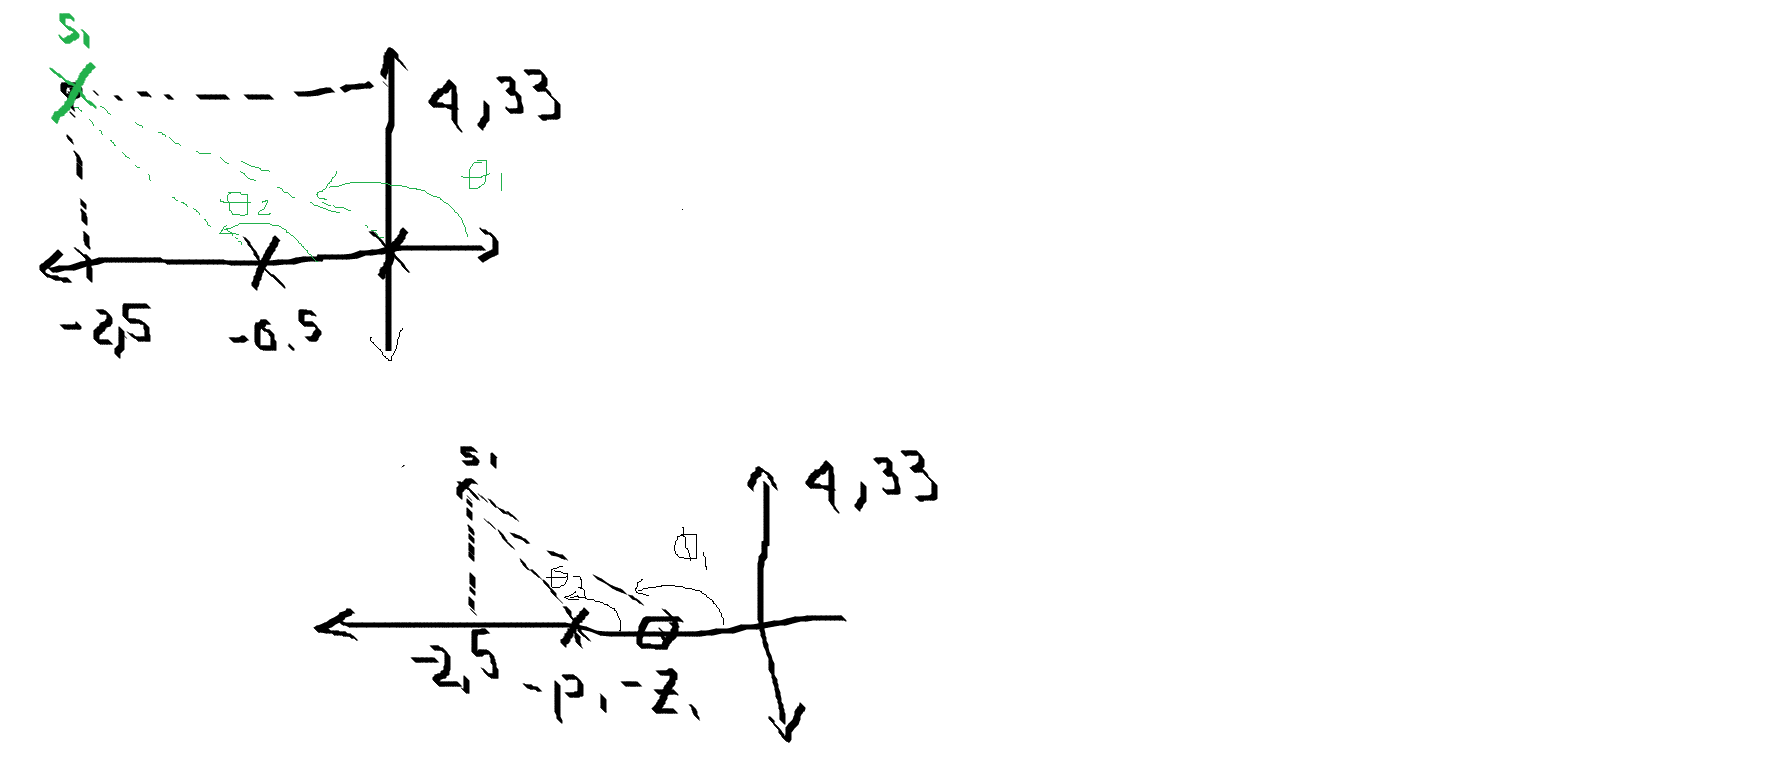 s1
4,33
θ1
θ2
-2,5
-0.5
s1
4,33
θ1
θ2
-2,5
-p1
-z1